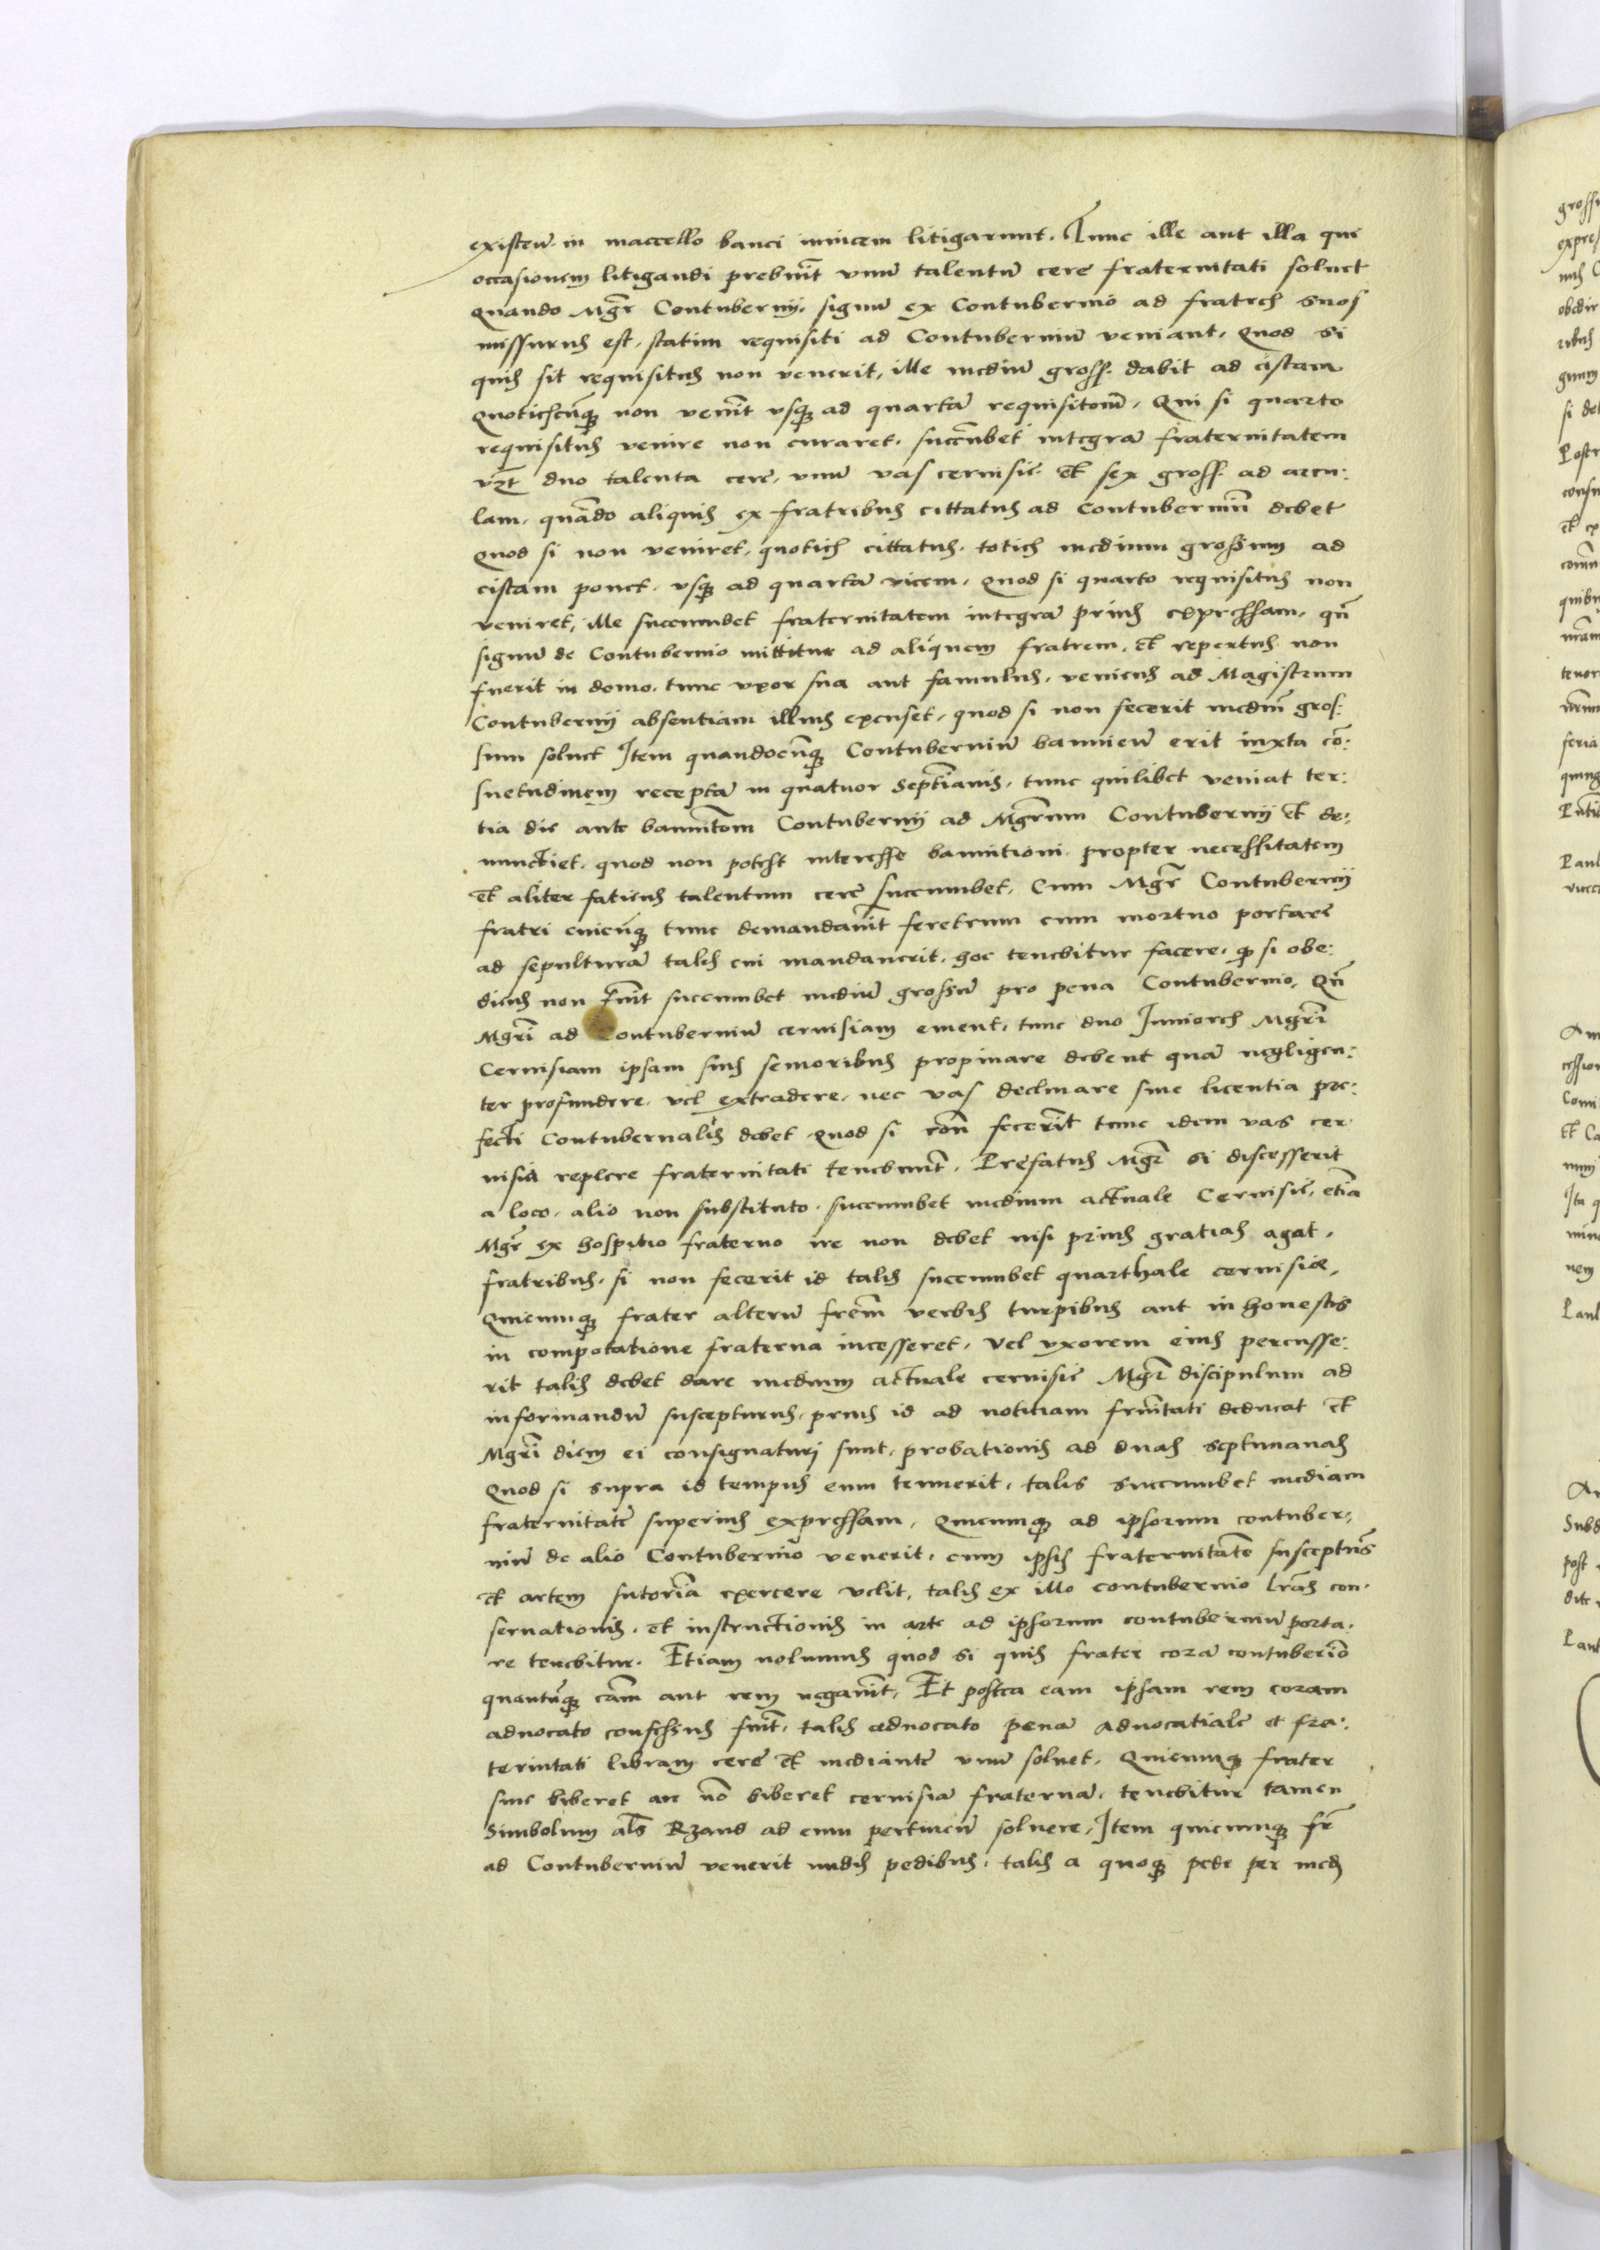 existeñ. in maccello banci inuicem litigarunt. Tunc ille aut illa que
occasionem litigandi prebuit̃ vnũ talentũ cere fraternitati soluet
Quando Mgr̃ Contubernij, signũ ex Contubernio ad fratres suos
missurus est, statim requisiti ad Contuberniũ veniant. Quod si
quis sit requisitus non venerit, ille mediũ gross. dabit ad cistam
Quotiescũq3 non venit̃ vsq3 ad quartã requisitõem, Qui si quarto
requisitus venire non curaret, succũbet integrã fraternitatem
vz̃t duo talenta cere, vnũ vas ceruisie et sex gross. ad arcu:
lam, quãdo aliquis ex fratribus cittatus ad Contuberniũ debet
Quod si non veniret, quoties cittatus, toties medium grossum ad
cistam ponet, vsq3 ad quartã vicem, Quod si quarto requisitus non
veniret, ille succumbet fraternitatem integrã prius expressam, qñ
signũ de Contubernio mittitur ad aliquem fratrem, et repertus non
fuerit in domo, tunc vxor sua aut famulus, veniens ad Magistrum
Contubernij absentiam illius excuset, quod si non fecerit mediũ gros:
sum soluet Item quandocũq3 Contuberniũ bannieñ erit iuxta cõ:
suetudinem receptã in quatuor Septĩanis, tunc quilibet veniat ter:
tia die ante bannitõem Contubernij ad Mgr̃um Contubernij et de:
nunctiet, quod non potest interesse bannitioni propter necessitatem
et aliter faciens talentum cere succumbet, Cum Mgr̃ Contubernij
fratri cuicũq3 tunc demandauit̃ feretrum cum mortuo portare
ad sepulturã talis cui mandauerit, hoc tenebitur facere, q3 si obe:
diens non fuit̃ succumbet mediũ grossũ pro pena Contubernio, Qñ
Mgrĩ ad Contuberniũ ceruisiam ement, tunc duo Iuniores Mgrĩ
Ceruisiam ipsam suis senioribus propinare debent quã negligen:
ter profundere, vel extradere, nec vas declinare sine licentia pre:
fecti Contubernalis debet Quod si coñ fecerit̃ tunc idem vas cer
uisia replere fraternitati tenebunt̃, Prefatus Mgr̃ si discesserit
a loco, alio non substituto, succumbet medium actuale Ceruisie, etĩa
Mgr̃ ex hospitio fraterno ire non debet nisi prius gratias agat,
fratribus, si non fecerit id talis succumbet quarthale ceruisiæ,
Quicumq3 frater alterũ frẽm verbis turpibus aut in honestis
in compotatione fraterna incesseret, vel vxorem eius percusse:
rit talis debet dare medium actuale ceruisie Mgr̃ discipulum ad
informandũ suscepturus, prius id ad notitiam frñitati deducat et
Mgrĩ diem ei consignaturi sunt, probationis ad duas septimanas
Quod si supra id tempus eum tenuerit, talis succumbet mediam
fraternitatẽ superius expressam, Quicumq3 ad ipsorum contuber:
niũ de alio Contubernio venerit, cum ipsis fraternitatẽ suscepturus
et artem sutoriã exercere velit, talis ex illo contubernio lrãs con:
seruationis, et instructionis in arte ad ipsorum contuberniũ porta:
re tenebitur. Etiam volumus quod si quis frater corã contuberiõ
quantũq3 cãm aut rem negauit̃, Et postea eam ipsam rem coram
aduocato confessus fuit̃, talis aduocato penã aduocatialẽ et fra:
ternitati libram cere et mediantẽ vnũ soluet, Quicumq3 frater
siue biberet an nõ biberet ceruisiã fraternã, tenebitur tamen
Simbolum als̃ Rzand ad eum pertineñ soluere, Item quicumq3 fr̃
ad Contuberniũ venerit nudis pedibus, talis a quoq3 pede per med